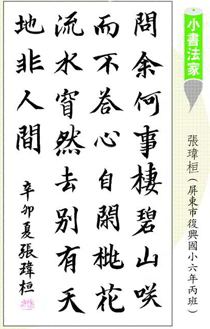 小書法家
張瑋桓(屏東市復興國小六年丙班)
問余何事棲碧山咲
而不荅心自閑桃花
流水窅然去別有天
地非人間
辛卯夏張瑋桓